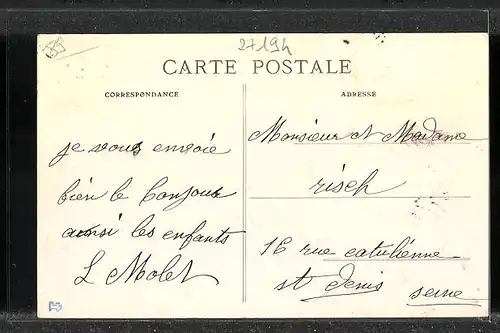 27194
CARTE POSTALE
CORRESPONDANCE
ADRESSE
je vous envoie
bien le bonjour
ainsi les enfants
L Molet
Monsieur et Madame
risch
16 rue catulienne
st Denis
seine